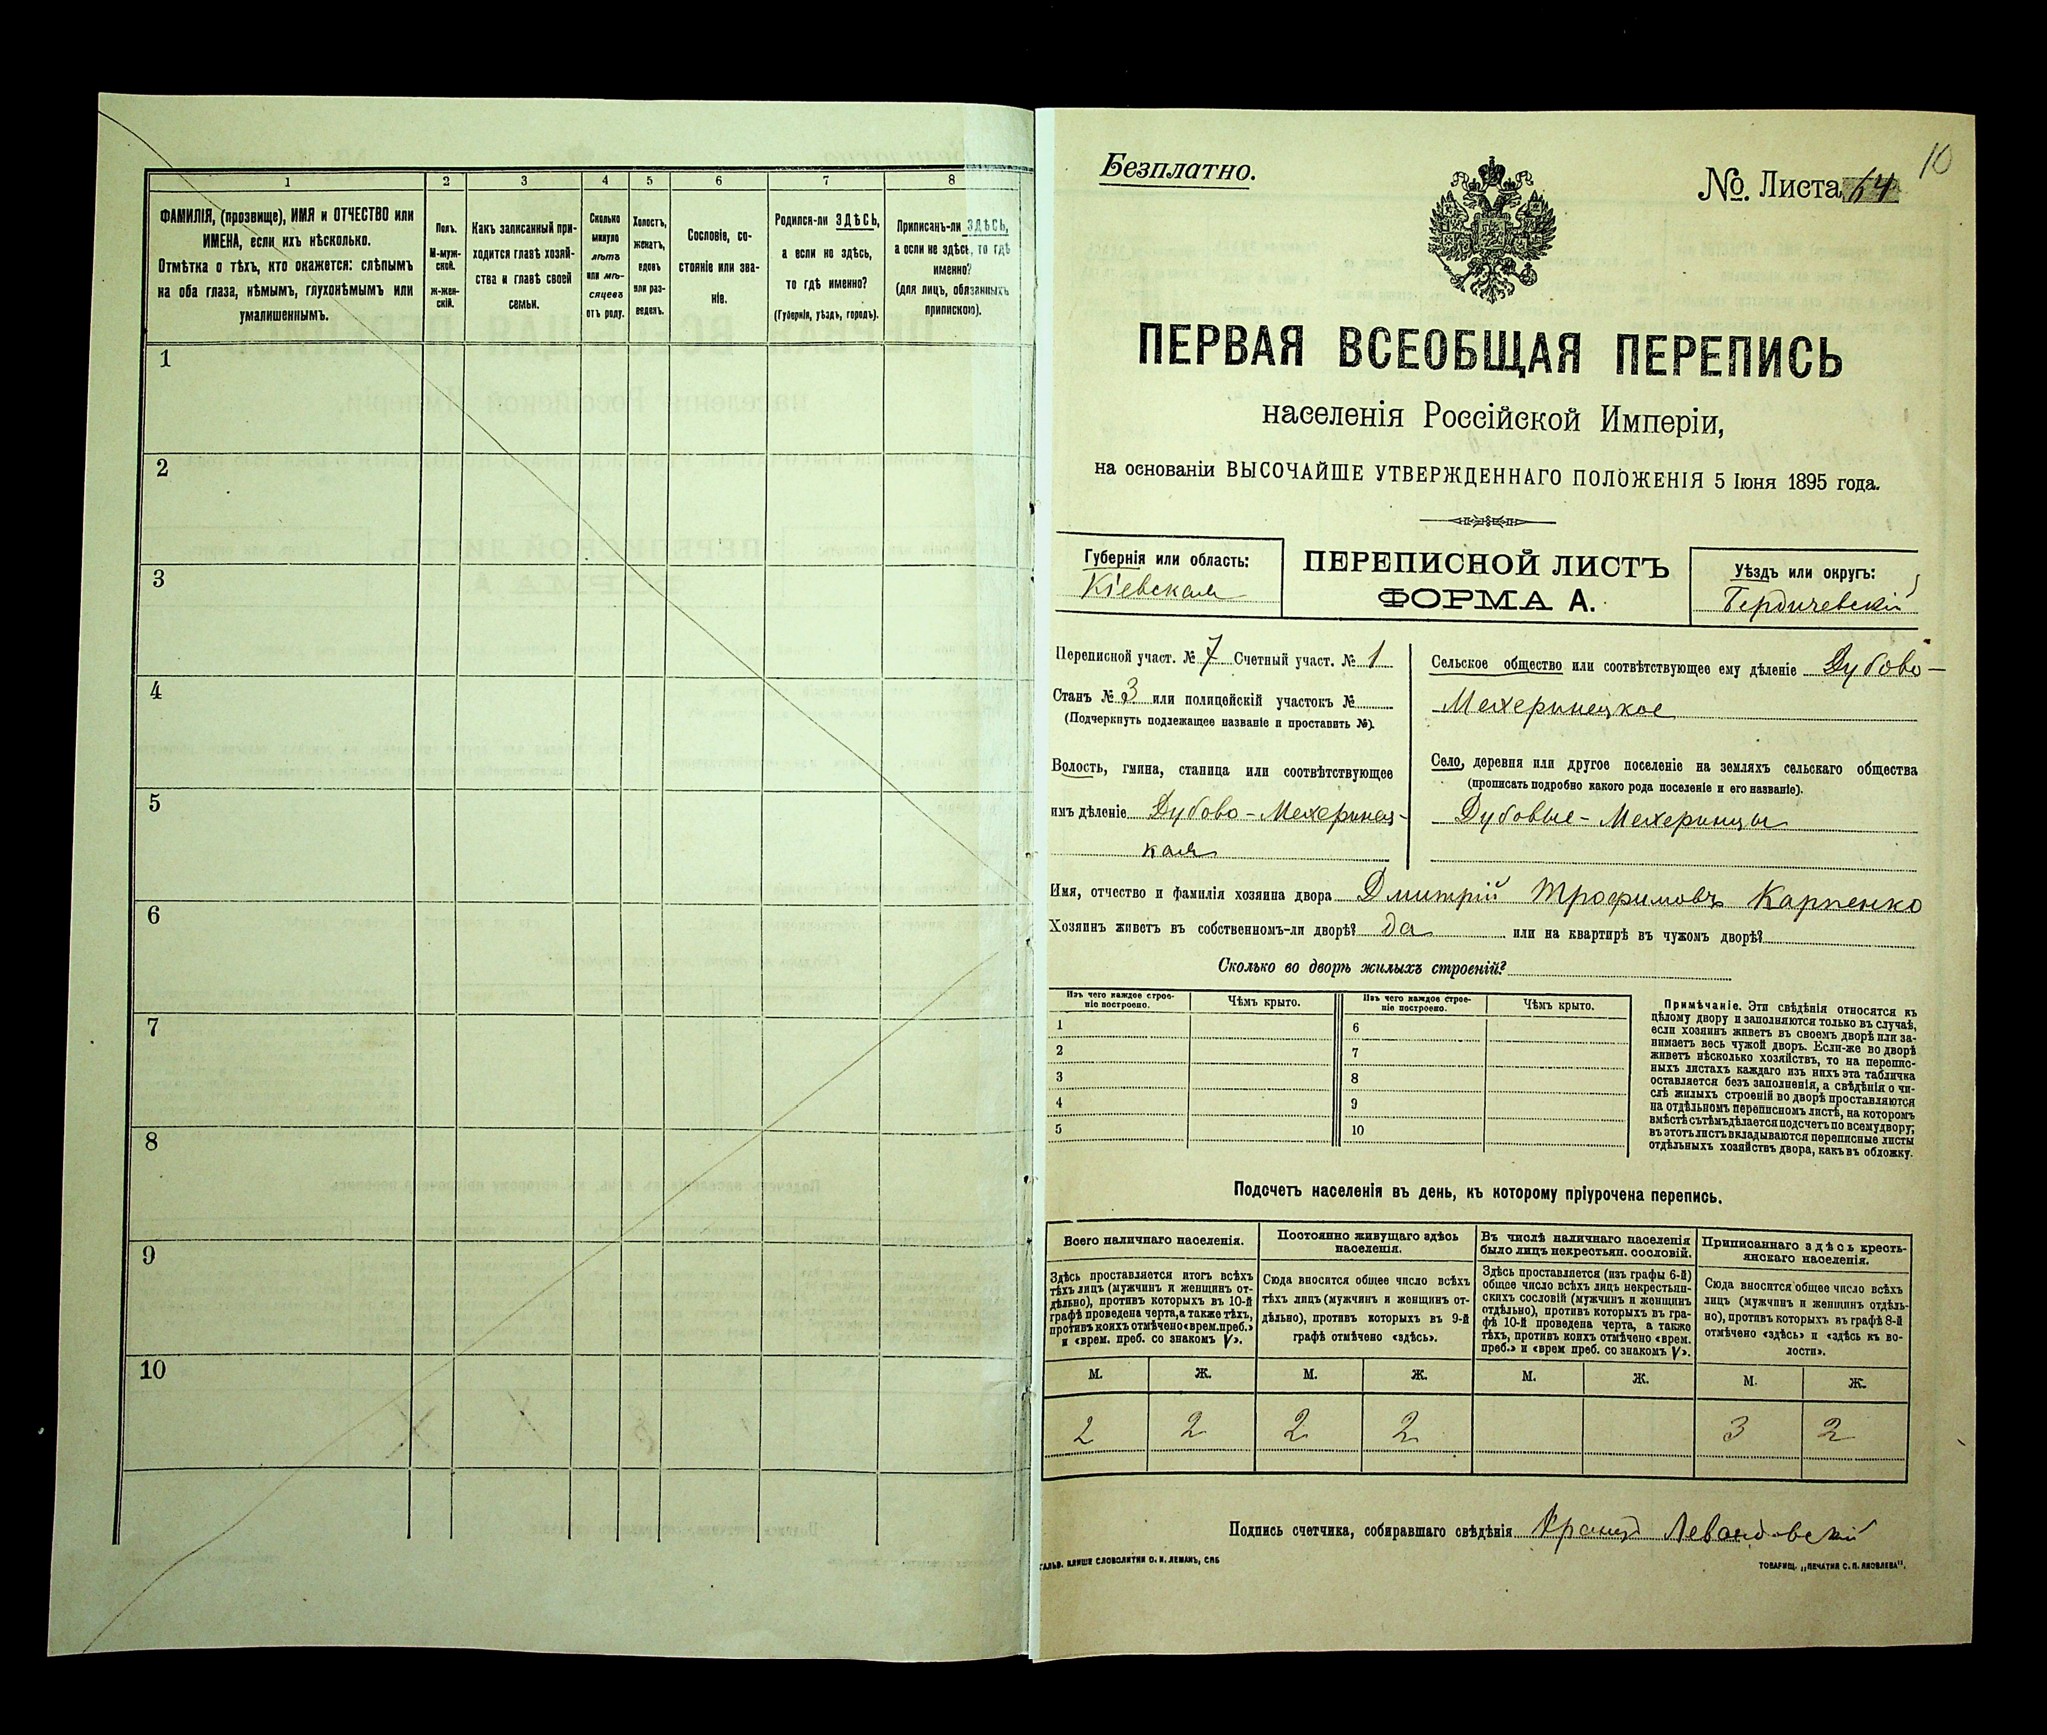 1
2
3
4
5
6
7
8
ФАМИЛІЯ, (прозвище), ИМЯ и ОТЧЕСТВО или
ИМЕНА, если ихъ нѣсколько.
Отмѣтка о тѣхъ, кто окажется: слѣпымъ
на оба глаза, нѣмымъ, глухонѣмымъ или
умалишеннымъ.
Полъ.
М-муж-
ской.
ж-жен-
скій.
Какъ записанный при-
ходится главѣ хозяй-
ства и главѣ своей
семьи.
Сколько
минуло
лѣтъ
или мѣ-
сяцевъ
отъ роду.
Холостъ,
женатъ,
вдовъ
или раз-
веденъ.
Сословіе, со-
стояніе или зва-
ніе.
Родился-ли ЗДѢСЬ,
а если не здѣсь,
то гдѣ именно?
(Губернія, уѣздъ, городъ).
Приписанъ-ли ЗДѢСЬ,
а если не здѣсь, то гдѣ
именно?
(для лицъ, обязанныхъ
припискою).
1
2
3
4
5
6
7
8
9
10
Безплатно.
№. Листа 64
10
ПЕРВАЯ ВСЕОБЩАЯ ПЕРЕПИСЬ
населенія Россійской Имперіи,
на основаніи ВЫСОЧАЙШЕ УТВЕРЖДЕННАГО ПОЛОЖЕНІЯ 5 Іюня 1895 года.
Губернія или область:
Кіевская
ПЕРЕПИСНОЙ ЛИСТЪ
ФОРМА А.
Уѣздъ или округъ:
Бердичевскій
Переписной участ. № 7 Счетный участ. № 1
Станъ № 3 или полицейскій участокъ №
(Подчеркнуть подлежащее названіе и проставить №).
Волость, гмина, станица или соотвѣтствующее
имъ дѣленіе Дубово-Мехеринец-
кая
Сельское общество или соотвѣтствующее ему дѣленіе Дубово-
Мехеринецкое
Село, деревня или другое поселеніе на земляхъ сельскаго общества
(прописать подробно какого рода поселеніе и его названіе).
Дубовые-Мехеринцы
Имя, отчество и фамилія хозяина двора Дмитрій Трофимовъ Карпенко
Хозяинъ живетъ въ собственномъ-ли дворѣ? да или на квартирѣ въ чужомъ дворѣ?
Сколько во дворѣ жилыхъ строеній?
Изъ чего каждое строе-
ніе построено.
Чѣмъ крыто.
Изъ чего каждое строе-
ніе построено.
Чѣмъ крыто.
1
2
3
4
5
6
7
8
9
10
Примѣчаніе. Эти свѣдѣнія относятся къ
цѣлому двору и заполняются только въ случаѣ,
если хозяинъ живетъ въ своемъ дворѣ или за-
нимаетъ весь чужой дворъ. Если-же во дворѣ
живетъ нѣсколько хозяйствъ, то на перепис-
ныхъ листахъ каждаго изъ нихъ эта табличка
оставляется безъ заполненія, а свѣдѣнія о чи-
слѣ жилыхъ строеній во дворѣ проставляются
на отдѣльномъ переписномъ листѣ, на которомъ
вмѣстѣ съ тѣмъ дѣлается подсчетъ по всему двору;
въ этотъ листъ вкладываются переписные листы
отдѣльныхъ хозяйствъ двора, какъ въ обложку.
Подсчетъ населенія въ день, къ которому пріурочена перепись.
Всего наличнаго населенія.
Здѣсь проставляется итогъ всѣхъ
тѣхъ лицъ (мужчинъ и женщинъ от-
дѣльно), противъ которыхъ въ 10-й
графѣ проведена черта, а также тѣхъ,
противъ коихъ отмѣчено «врем. преб.»
и «врем. преб. со знакомъ V».
Постоянно живущаго здѣсь
населенія.
Сюда вносится общее число всѣхъ
тѣхъ лицъ (мужчинъ и женщинъ от-
дѣльно), противъ которыхъ въ 9-й
графѣ отмѣчено «здѣсь».
Въ числѣ наличнаго населенія
было лицъ некрестьян. сословій.
Здѣсь проставляется (изъ графы 6-й)
общее число всѣхъ лицъ некрестьян-
скихъ сословій (мужчинъ и женщинъ
отдѣльно), противъ которыхъ въ гра-
фѣ 10-й проведена черта, а также
тѣхъ, противъ коихъ отмѣчено «врем.
преб.» и «врем преб. со знакомъ V».
Приписаннаго здѣсь кресть-
янскаго населенія.
Сюда вносится общее число всѣхъ
лицъ (мужчинъ и женщинъ отдѣль-
но), противъ которыхъ въ графѣ 8-й
отмѣчено «здѣсь» и «здѣсь въ во-
лости».
М. Ж. М. Ж. М. Ж. М. Ж.
2 2 2 2 3 2
Подпись счетчика, собиравшаго свѣдѣнія Францъ Левандовскій
ГАЛЬВ. КЛИШЕ СЛОВОЛИТНИ О. И. ЛЕМАНЪ, СПБ
ТОВАРИЩ. „ПЕЧАТНЯ С. П. ЯКОВЛЕВА".